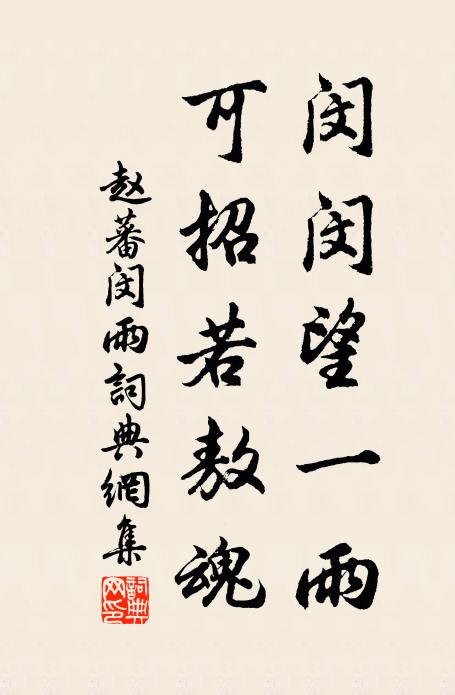 闵闵望一雨
可招若敖魂
赵蕃闵雨詞典網集
詞典網印